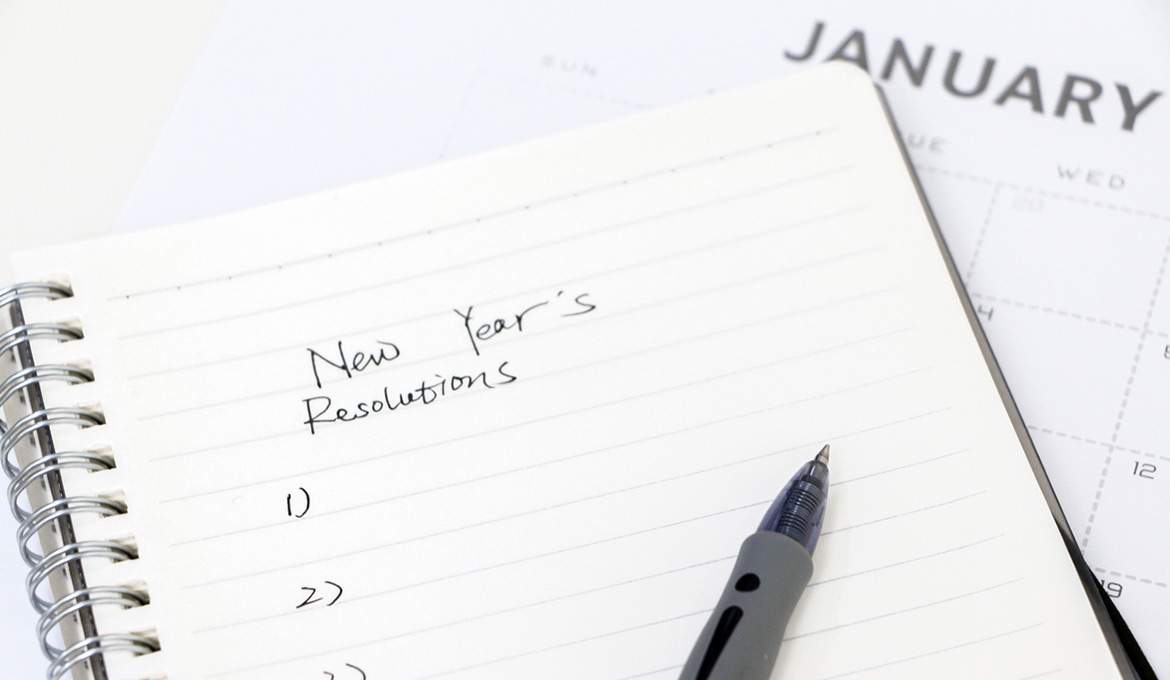 JANUARY
SUN
UE
WED
28
4
12
19
New Year's
Resolutions
1)
2)